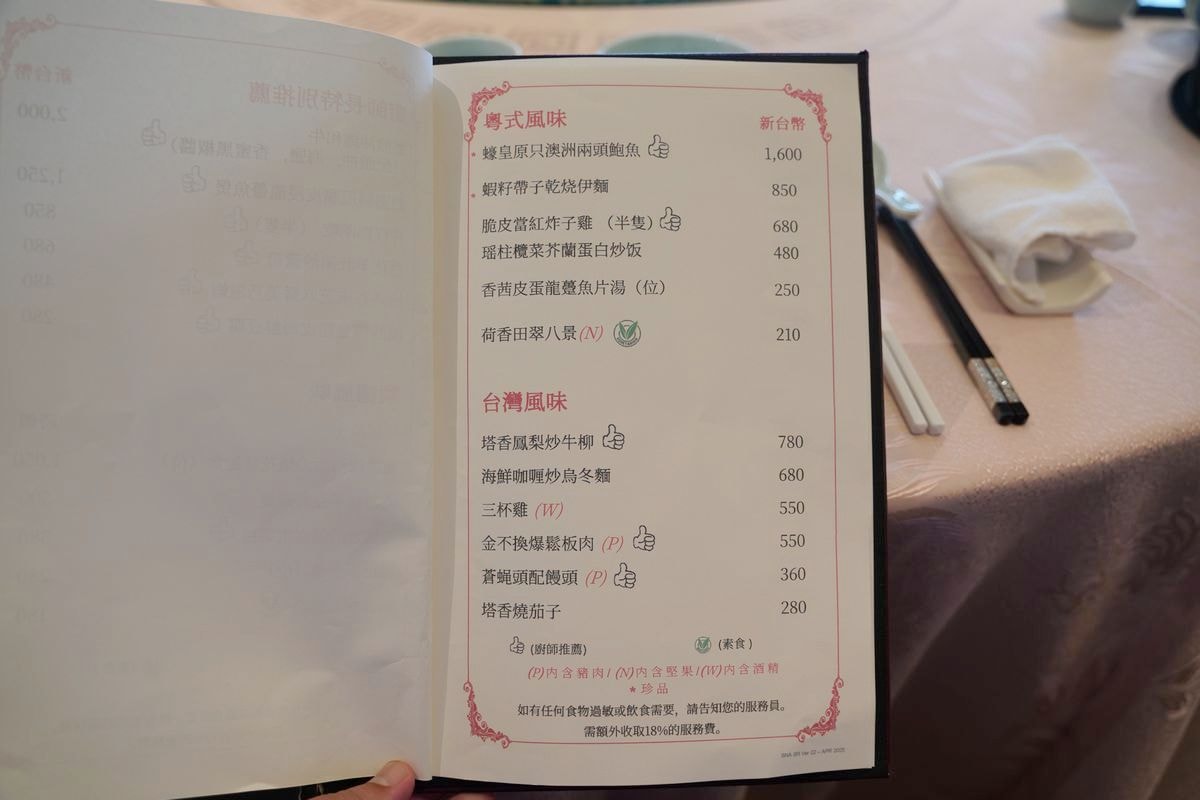 粵式風味
新台幣
* 蠔皇原只澳洲兩頭鮑魚 1,600
* 蝦籽帶子乾烧伊麵 850
脆皮當紅炸子雞 （半隻） 680
瑶柱欖菜芥蘭蛋白炒饭 480
香茜皮蛋龍躉魚片湯（位） 250
荷香田翠八景(N) 210
台灣風味
塔香鳳梨炒牛柳 780
海鮮咖喱炒烏冬麵 680
三杯雞 (W) 550
金不換爆鬆板肉 (P) 550
蒼蝇頭配饅頭 (P) 360
塔香燒茄子 280
(廚師推薦) (素食)
(P)内含豬肉/(N)内含堅果/(W)内含酒精
* 珍品
如有任何食物過敏或飲食需要，請告知您的服務員。
需額外收取18%的服務費。